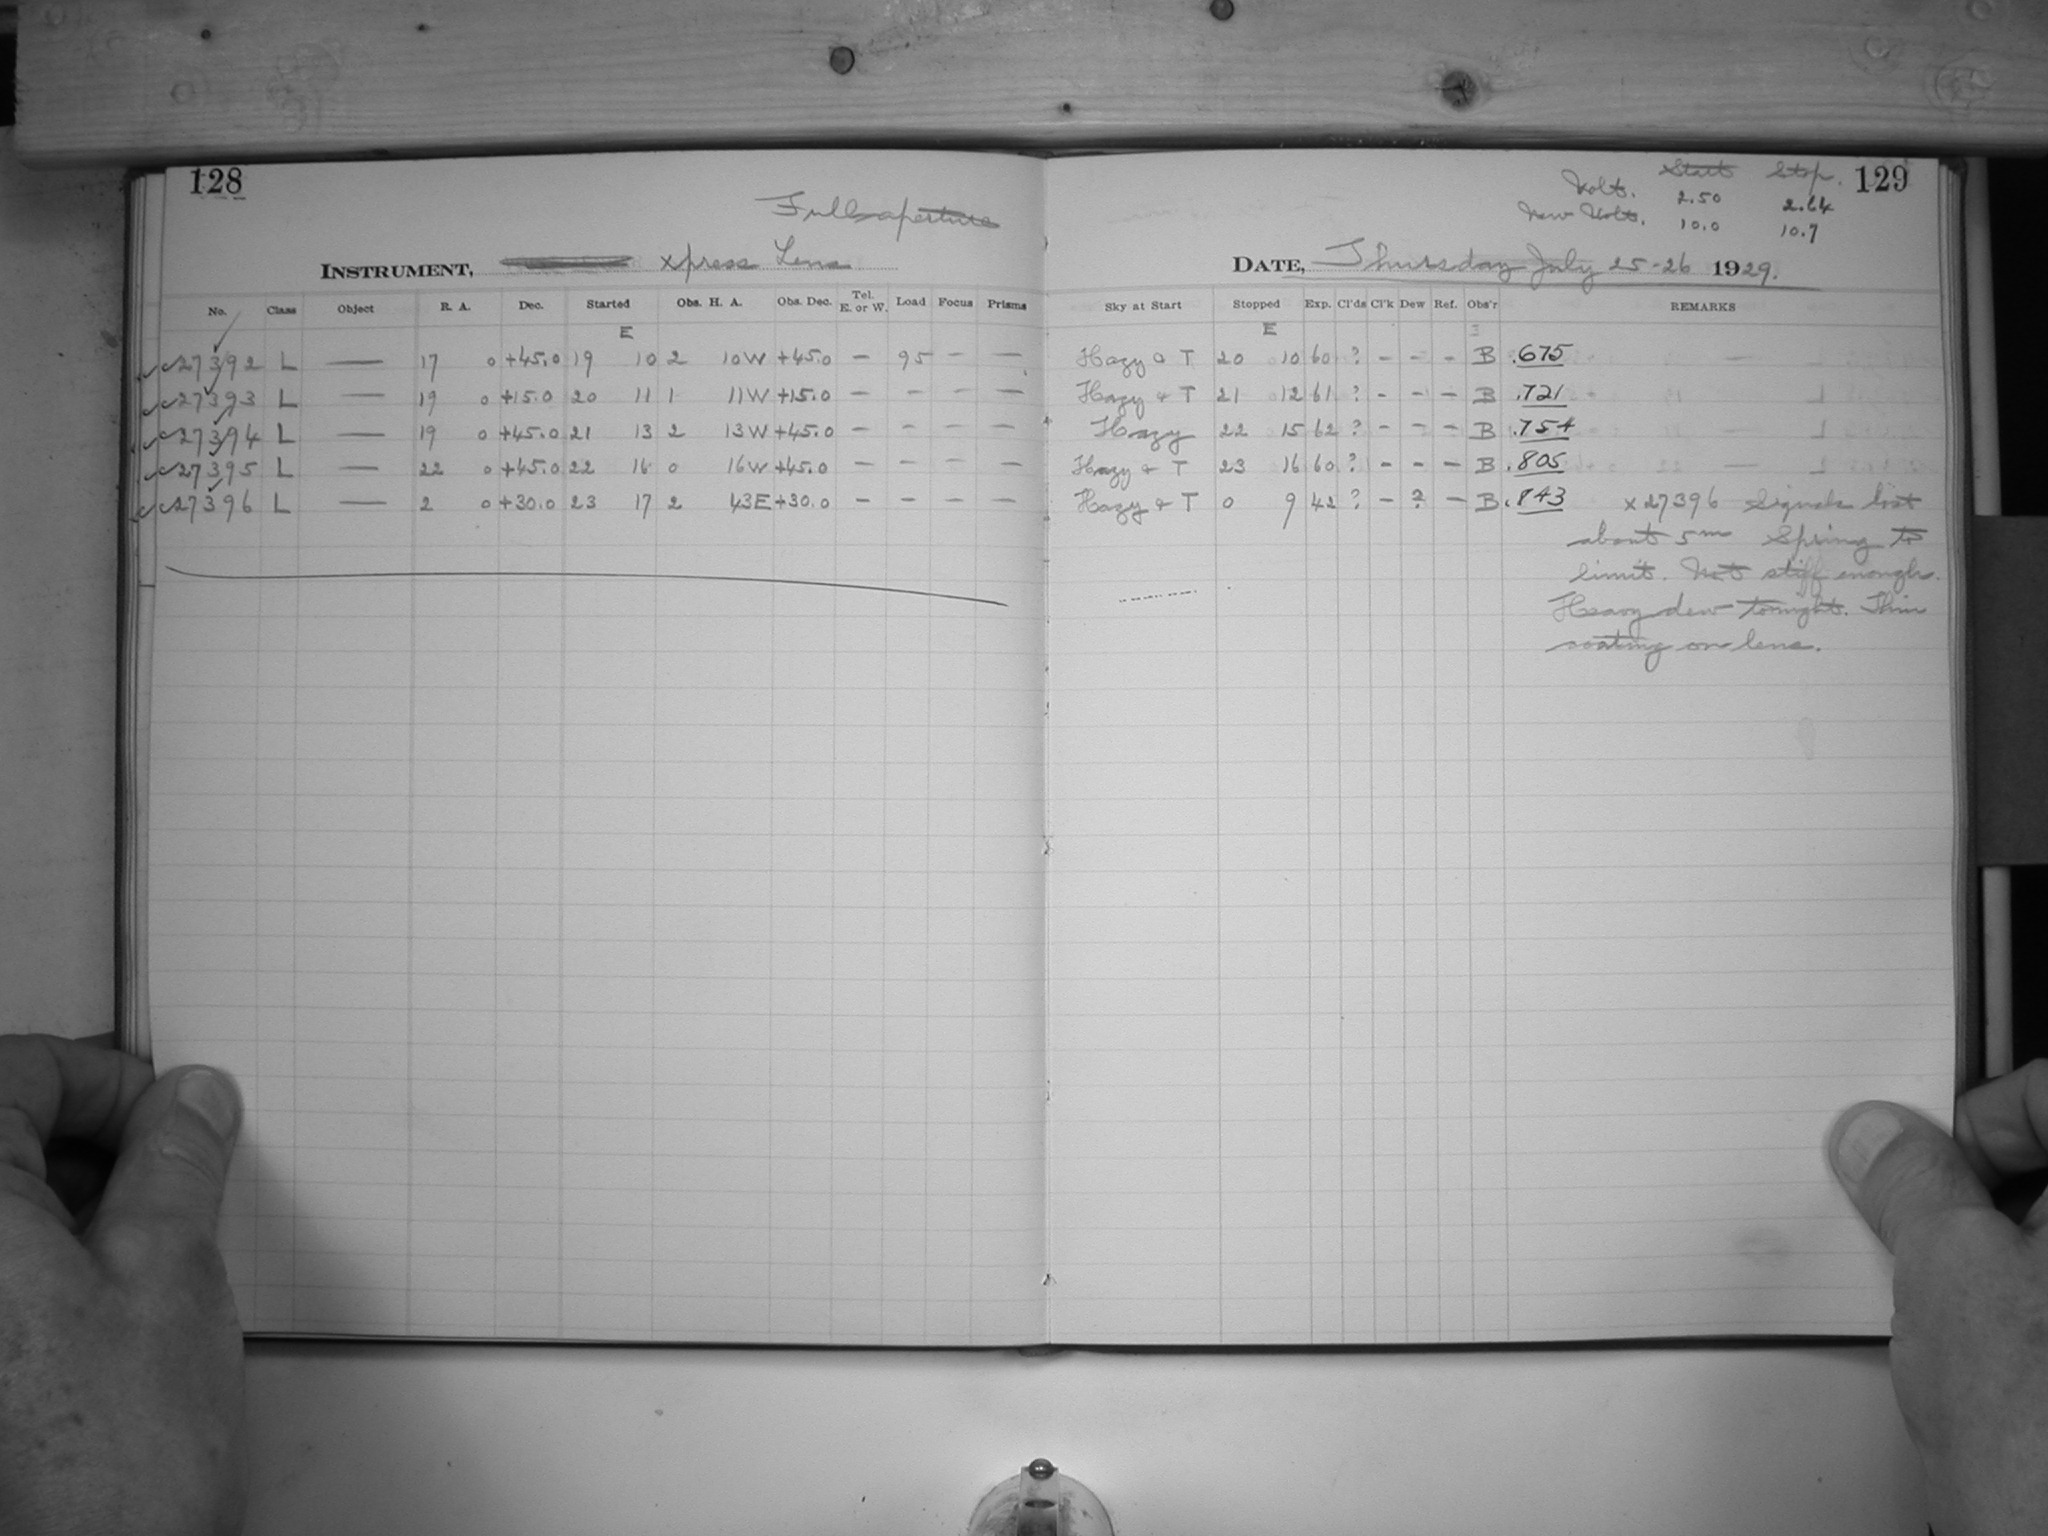 128
Full aperture
INSTRUMENT, xpress Lens
No. Class Object R. A. Dec. Started Obs. H. A. Obs. Dec. Tel. E. or W. Load Focus Prisms
E
27392 L — 17 0 +45.0 19 10 2 10W +45.0 — 95 — —
27393 L — 19 0 +15.0 20 11 1 11W +15.0 — — — —
27394 L — 19 0 +45.0 21 13 2 13W +45.0 — — — —
27395 L — 22 0 +45.0 22 16 0 16W +45.0 — — — —
27396 L — 2 0 +30.0 23 17 2 43E +30.0 — — — —
129
Start Stop.
Volts. 2.50 2.64
New Volts. 10.0 10.7
DATE, Thursday July 25-26 1929.
Sky at Start Stopped Exp. Cl'ds Cl'k Dew Ref. Obs'r REMARKS
E
Hazy & T 20 10 60 ? - - - B .675
Hazy & T 21 12 61 ? - - - B .721
Hazy 22 15 62 ? - - - B .754
Hazy & T 23 16 60 ? - - - B .805
Hazy & T 0 9 42 ? - ? - B .843 x27396 Signals lost
about 5m Spring to
limit. Not stiff enough.
Heavy dew tonight. Thin
coating on lens.